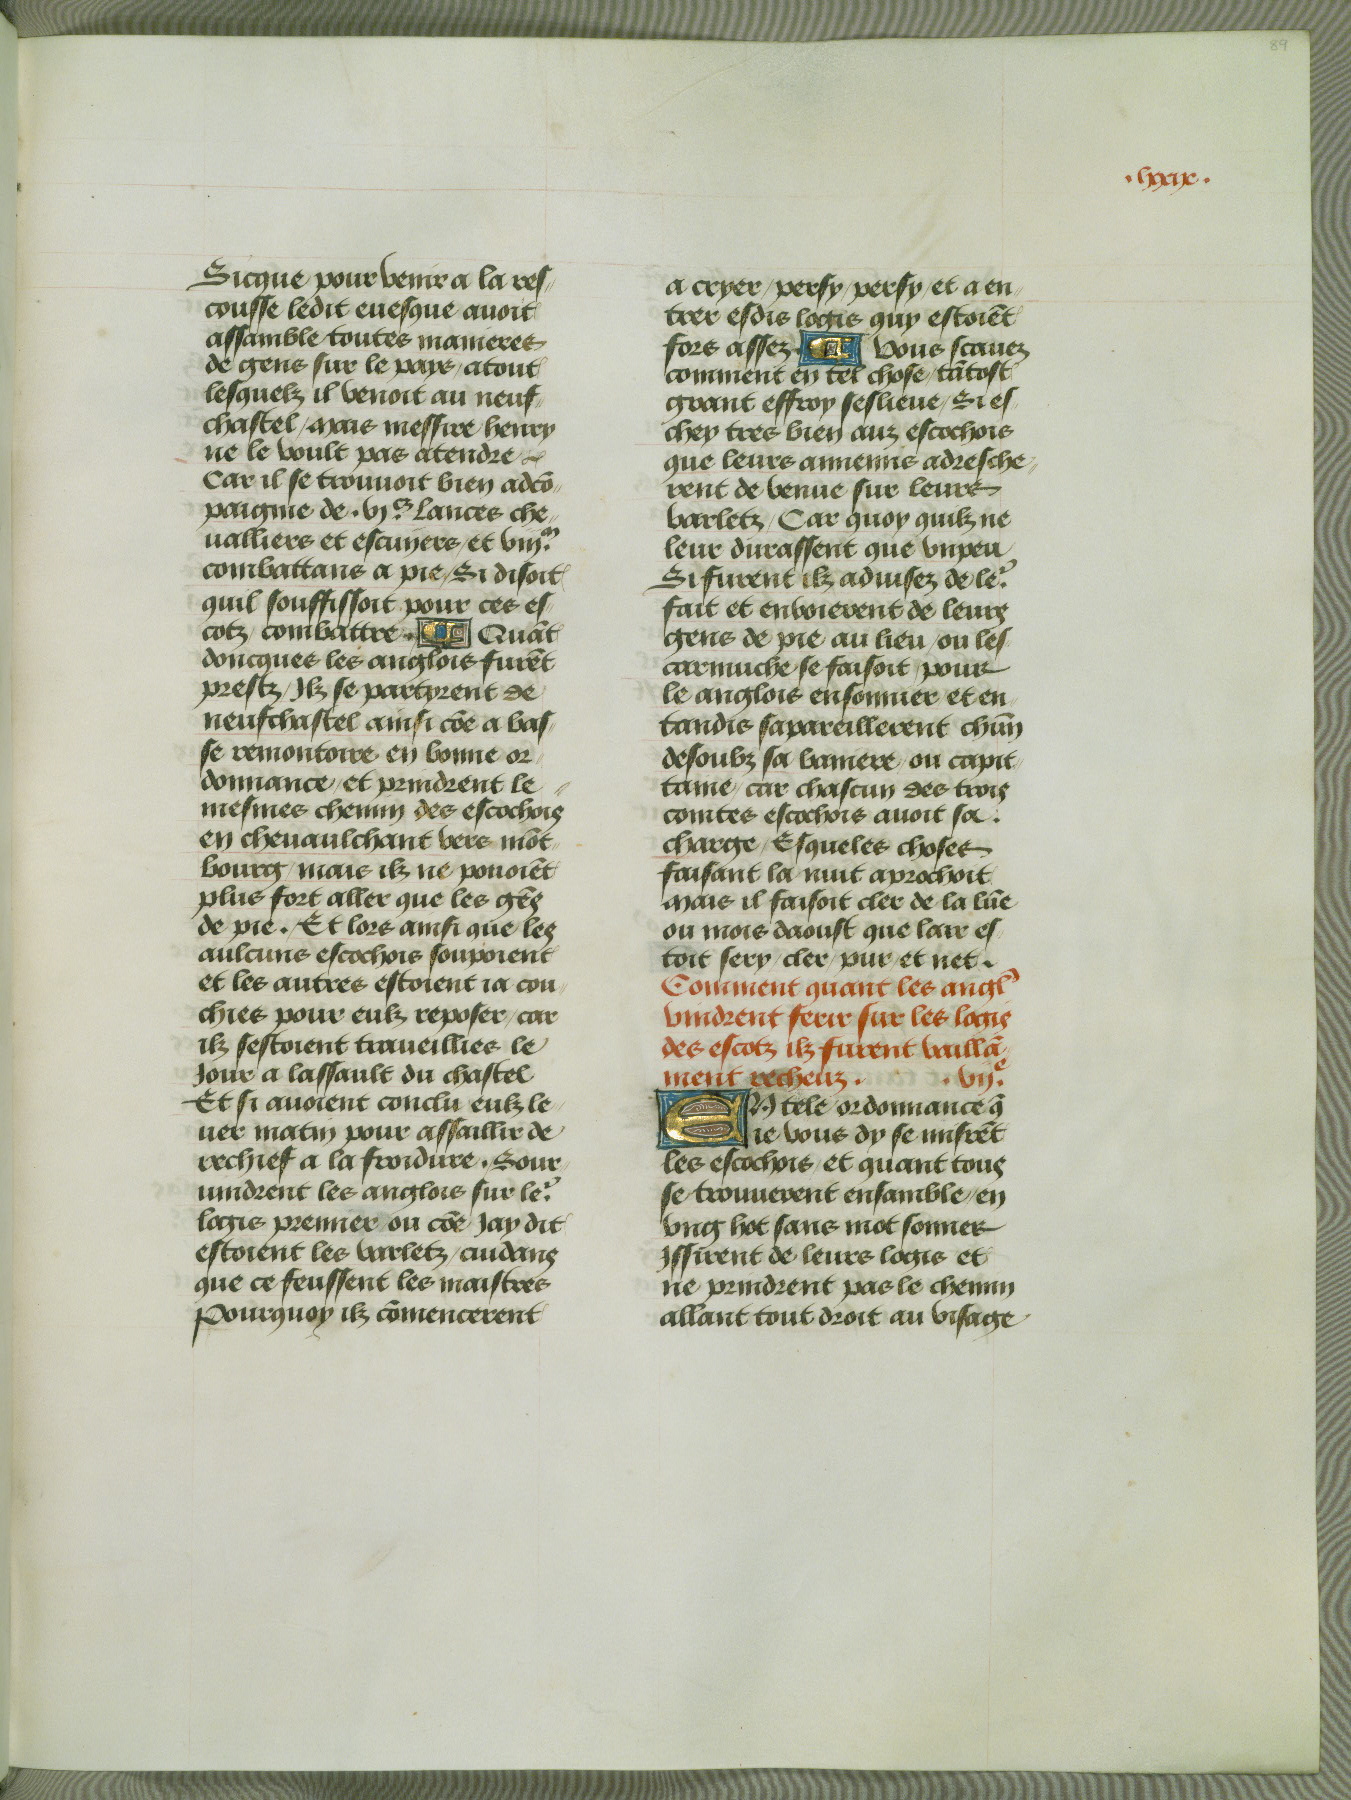 89
.lxxxix.
Sicque pour venir a la res/
cousse ledit euesque auoit
assamble toutes manieres
de gens sur le pays / atout
lesquelz il venoit au neuf/
chastel / Mais messire henry
ne le voult pas atendre
Car il se trouuoit bien adcō/
paignie de .vjᶜ. lances che/
ualliers et escuyers / et viijᵐ.
combattans a pie / Si disoit
quil souffissoit pour ces es/
cotz combattre. Quāt
doncques les anglois furēt
prestz / Ilz se partyrent de
neufchastel ainsi cōe a bas/
se remontoire en bonne or/
donnance / et prindrent le
mesmes chemin des escochois
en cheuaulchant vers mōt/
bourg / mais ilz ne pouoiēt
plus fort aller que les gēs
de pie. Et lors ainsi que les
aulcuns escochois souppoient
et les autres estoient ia cou/
chies pour eulz reposer / car
ilz sestoient traueillies le
Jour a lassault du chastel
Et si auoient conclu eulz le/
uer matin pour assaillir de
rechief a la froidure. Sour/
uindrent les anglois sur leʳ.
logis premier / ou cōe Jay dit
estoient les varletz / cuidans
que ce feussent les maistres
Pourquoy ilz cōmencerent
a cryer / persy / persy / et a en/
trer esdis logis quy estoiēt
fors assez. Vous scauez
comment en tel chose / tātost
grant effroy seslieue / Si es/
chey tres bien auz escochois
que leurs annemis adresche/
rent de venue sur leurs
varletz / Car quoy quilz ne
leur durassent que vnpeu
Si furent ilz aduisez de leʳ.
fait et enuoierent de leurs
gens de pie au lieu / ou les/
carmuche se faisoit / pour
le anglois ensonnier et en/
tandis sapareillerent chūn
desoubz sa baniere / ou capit/
taine / car chascun des trois
comtes escochois auoit sa.
charge / Esqueles choses
faisant la nuit aprochoit
Mais il faisoit cler de la lūe
ou mois daoust que lair es/
toit sery / cler / pur / et net.
Comment quant les angl'
vindrent ferir sur les logis
des escotz ilz furent vaillā/
ment recheuz. .vijᵉ.
EN tele ordonnance q̄
ie vous dy se misrēt
les escochois / et quant tous
se trouuerent ensamble / en
vng hot sans mot sonner
Issirent de leurs logis et
ne prindrent pas le chemin
allant tout droit au visage